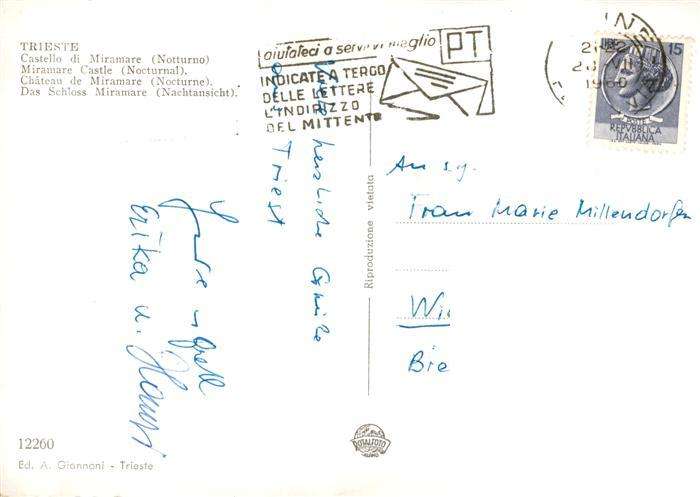 TRIESTE
Castello di Miramare (Notturno)
Miramare Castle (Nocturnal).
Château de Miramare (Nocturne).
Das Schloss Miramare (Nachtansicht).
aiutateci a servirvi meglio
PT
INDICATE A TERGO
DELLE LETTERE
L'INDIRIZZO
DEL MITTENTE
1960
15
POSTE
REPVBBLICA
ITALIANA
herzliche Grüße
Triest
Erika u.
Riproduzione vietata
An s.g.
Frau Marie Millendorfer
Wi
Bie
ROTALFOTO
MILANO
12260
Ed. A. Giannoni - Trieste